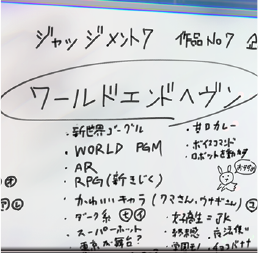 ジャッジメント7 作品No7
ワールドエンドヘヴン
・新世界ゴーグル
・WORLD PGM
・AR
・RPG(新きじく)
・かわいいキャラ(クマさん、ウサギさん)
・ダーク系
・スーパーホット
・東京が舞台?
・甘口カレー
・ボイスコマンド
・ロボットを動かす
・女子高生=JK